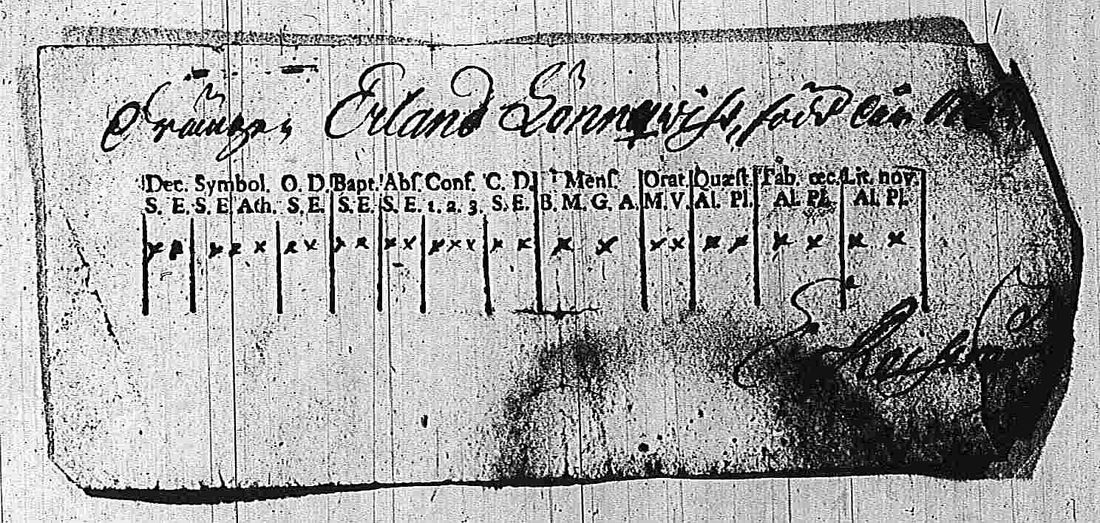 Drängen Erland Lönnqwist, född den
Dec. Symbol. O. D. Bapt. Abſ. Conf. C. D. Menſ. Orat. Quæſt. Tab. œc. Lit. nov.
S. E. S. E. Ath. S. E. S. E. S. E. 1. 2. 3. S. E. B. M. G. A. M. V. Al. Pl. Al. Pl. Al. Pl.
x x x x x x x x x x x x x x x x x x x x x x x x x x x